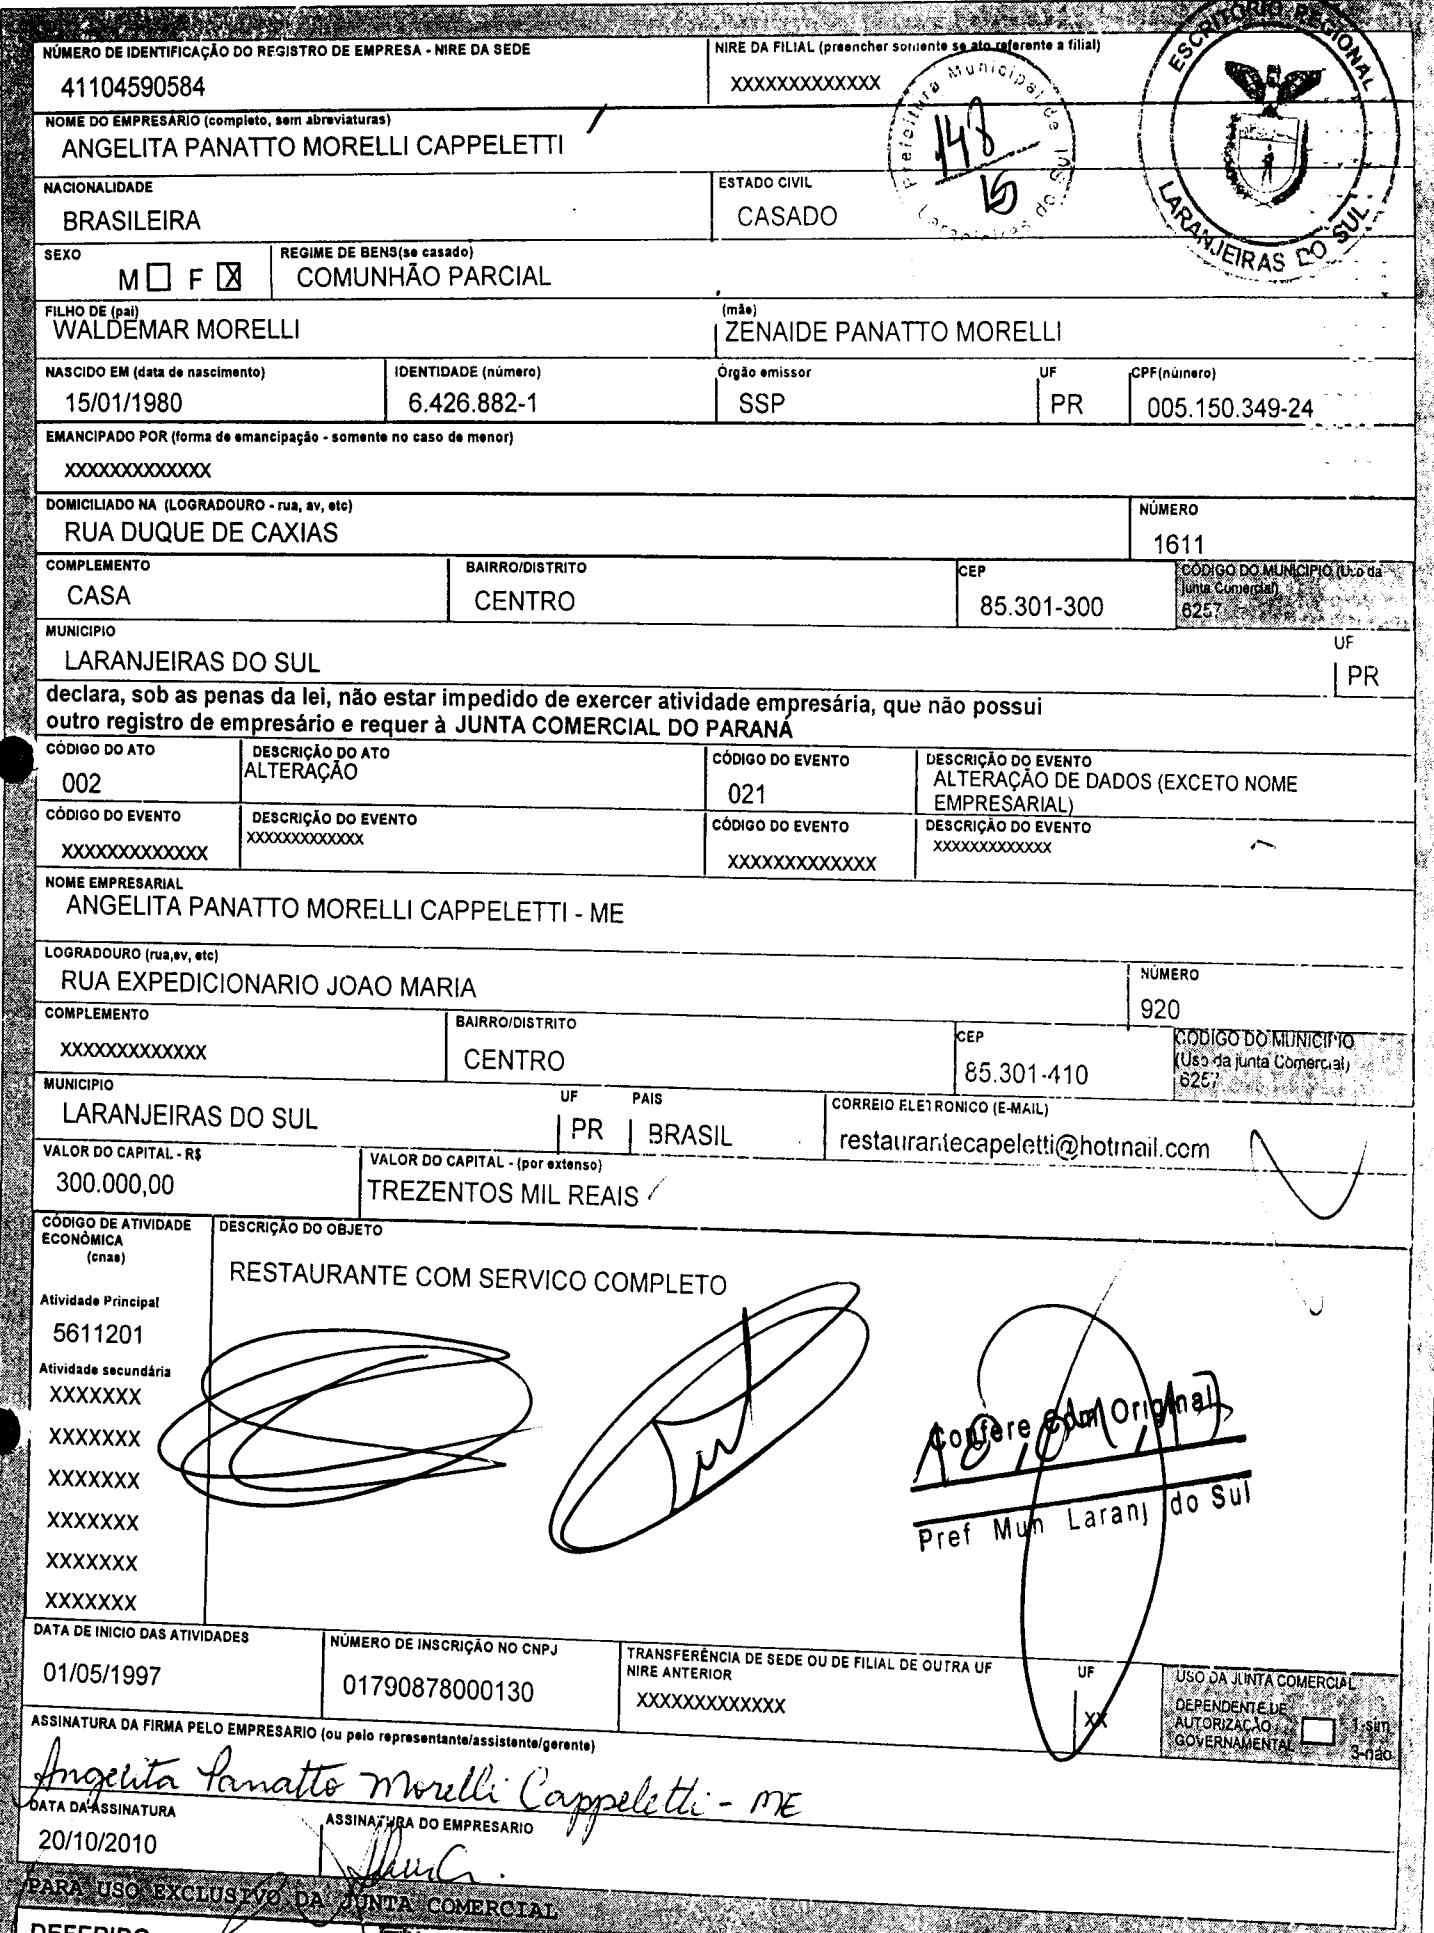 NÚMERO DE IDENTIFICAÇÃO DO REGISTRO DE EMPRESA - NIRE DA SEDE
41104590584
NIRE DA FILIAL (preencher somente se ato referente a filial)
XXXXXXXXXXXXX
ESCRITÓRIO REGIONAL
LARANJEIRAS DO SUL
Prefeitura Municipal de
Laranjeiras do Sul
148
15
NOME DO EMPRESÁRIO (completo, sem abreviaturas)
ANGELITA PANATTO MORELLI CAPPELETTI
NACIONALIDADE
BRASILEIRA
ESTADO CIVIL
CASADO
SEXO
M F X
REGIME DE BENS(se casado)
COMUNHÃO PARCIAL
FILHO DE (pai)
WALDEMAR MORELLI
(mãe)
ZENAIDE PANATTO MORELLI
NASCIDO EM (data de nascimento)
15/01/1980
IDENTIDADE (número)
6.426.882-1
Órgão emissor
SSP
UF
PR
CPF(número)
005.150.349-24
EMANCIPADO POR (forma de emancipação - somente no caso de menor)
XXXXXXXXXXXXX
DOMICILIADO NA (LOGRADOURO - rua, av, etc)
RUA DUQUE DE CAXIAS
NÚMERO
1611
COMPLEMENTO
CASA
BAIRRO/DISTRITO
CENTRO
CEP
85.301-300
CÓDIGO DO MUNICIPIO (Uso da
junta Comercial)
6257
MUNICIPIO
LARANJEIRAS DO SUL
UF
PR
declara, sob as penas da lei, não estar impedido de exercer atividade empresária, que não possui
outro registro de empresário e requer à JUNTA COMERCIAL DO PARANÁ
CÓDIGO DO ATO
002
DESCRIÇÃO DO ATO
ALTERAÇÃO
CÓDIGO DO EVENTO
021
DESCRIÇÃO DO EVENTO
ALTERAÇÃO DE DADOS (EXCETO NOME
EMPRESARIAL)
CÓDIGO DO EVENTO
XXXXXXXXXXXXX
DESCRIÇÃO DO EVENTO
XXXXXXXXXXXXX
CÓDIGO DO EVENTO
XXXXXXXXXXXXX
DESCRIÇÃO DO EVENTO
XXXXXXXXXXXXX
NOME EMPRESARIAL
ANGELITA PANATTO MORELLI CAPPELETTI - ME
LOGRADOURO (rua,av, etc)
RUA EXPEDICIONARIO JOAO MARIA
NÚMERO
920
COMPLEMENTO
XXXXXXXXXXXXX
BAIRRO/DISTRITO
CENTRO
CEP
85.301-410
CÓDIGO DO MUNICIPIO
(Uso da junta Comercial)
6257
MUNICIPIO
LARANJEIRAS DO SUL
UF
PR
PAIS
BRASIL
CORREIO ELETRONICO (E-MAIL)
restaurantecapeletti@hotmail.com
VALOR DO CAPITAL - R$
300.000,00
VALOR DO CAPITAL - (por extenso)
TREZENTOS MIL REAIS
CÓDIGO DE ATIVIDADE
ECONÔMICA
(cnae)
DESCRIÇÃO DO OBJETO
RESTAURANTE COM SERVICO COMPLETO
Atividade Principal
5611201
Atividade secundária
XXXXXXX
XXXXXXX
XXXXXXX
XXXXXXX
XXXXXXX
XXXXXXX
Confere com Original
Pref Mun Laranj do Sul
DATA DE INICIO DAS ATIVIDADES
01/05/1997
NÚMERO DE INSCRIÇÃO NO CNPJ
01790878000130
TRANSFERÊNCIA DE SEDE OU DE FILIAL DE OUTRA UF
NIRE ANTERIOR
XXXXXXXXXXXXX
UF
XX
USO DA JUNTA COMERCIAL
DEPENDENTE DE
AUTORIZAÇÃO
GOVERNAMENTAL
1-sim
3-não
ASSINATURA DA FIRMA PELO EMPRESARIO (ou pelo representante/assistente/gerente)
Angelita Panatto Morelli Cappeletti - ME
DATA DA ASSINATURA
20/10/2010
ASSINATURA DO EMPRESARIO
PARA USO EXCLUSIVO DA JUNTA COMERCIAL
DEFERIDO